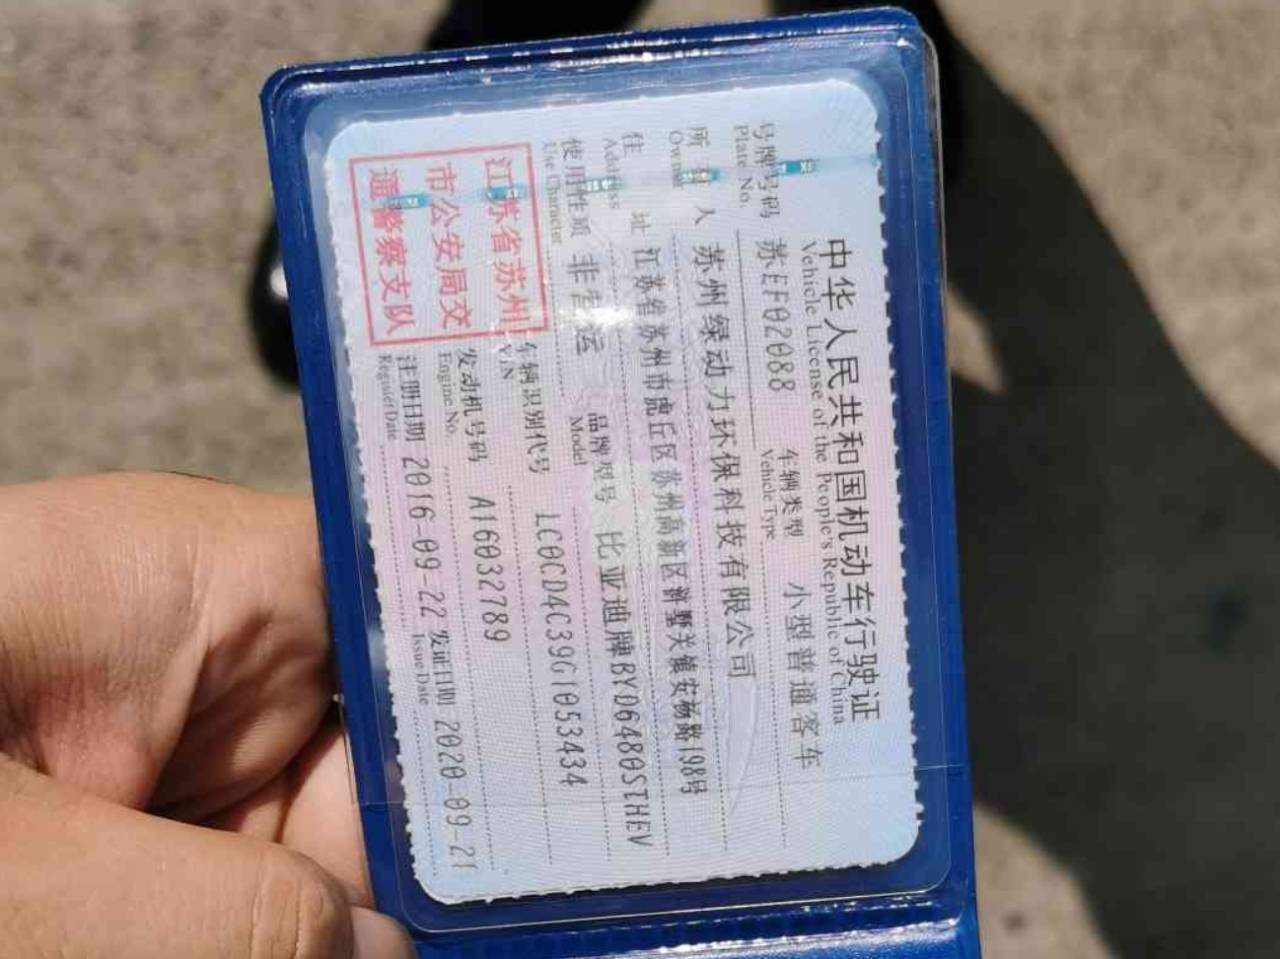 中华人民共和国机动车行驶证
Vehicle License of the People's Republic of China
号牌号码 苏EF02088 车辆类型 小型普通客车
Plate No. Vehicle Type
所有人 苏州绿动力环保科技有限公司
Owner
住址 江苏省苏州市虎丘区苏州高新区浒墅关镇安杨路198号
Address
使用性质 非营运 品牌型号 比亚迪牌BYD6480STHEV
Use Character Model
车辆识别代号 LC0CD4C39G1053434
VIN
发动机号码 A16032789
Engine No.
注册日期 2016-09-22 发证日期 2020-09-21
Register Date Issue Date
江苏省苏州
市公安局交
通警察支队